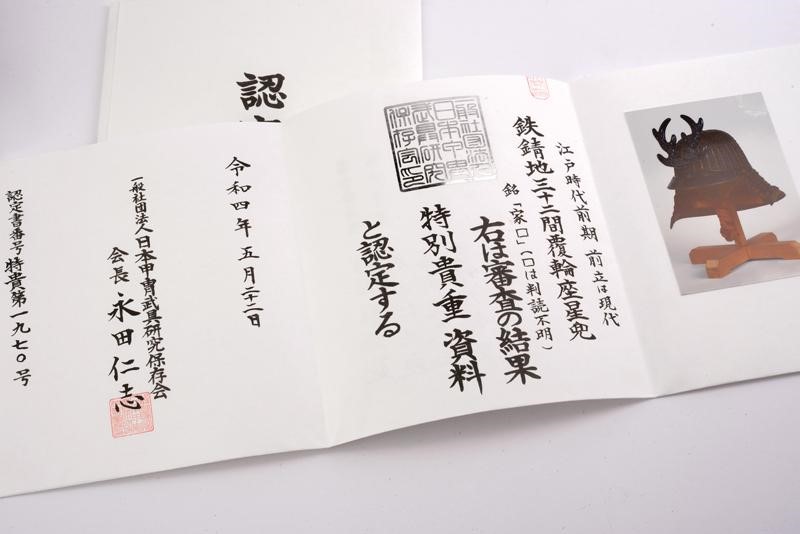 認
江戸時代前期 前立は現代
鉄錆地三十二間覆輪座星兜
銘「家□」(□は判読不明)
右は審査の結果
特別貴重 資料
と認定する
令和四年五月二十二日
一般社団法人日本甲冑武具研究保存会
会長 永田仁志
認定書番号 特貴第一九七〇号